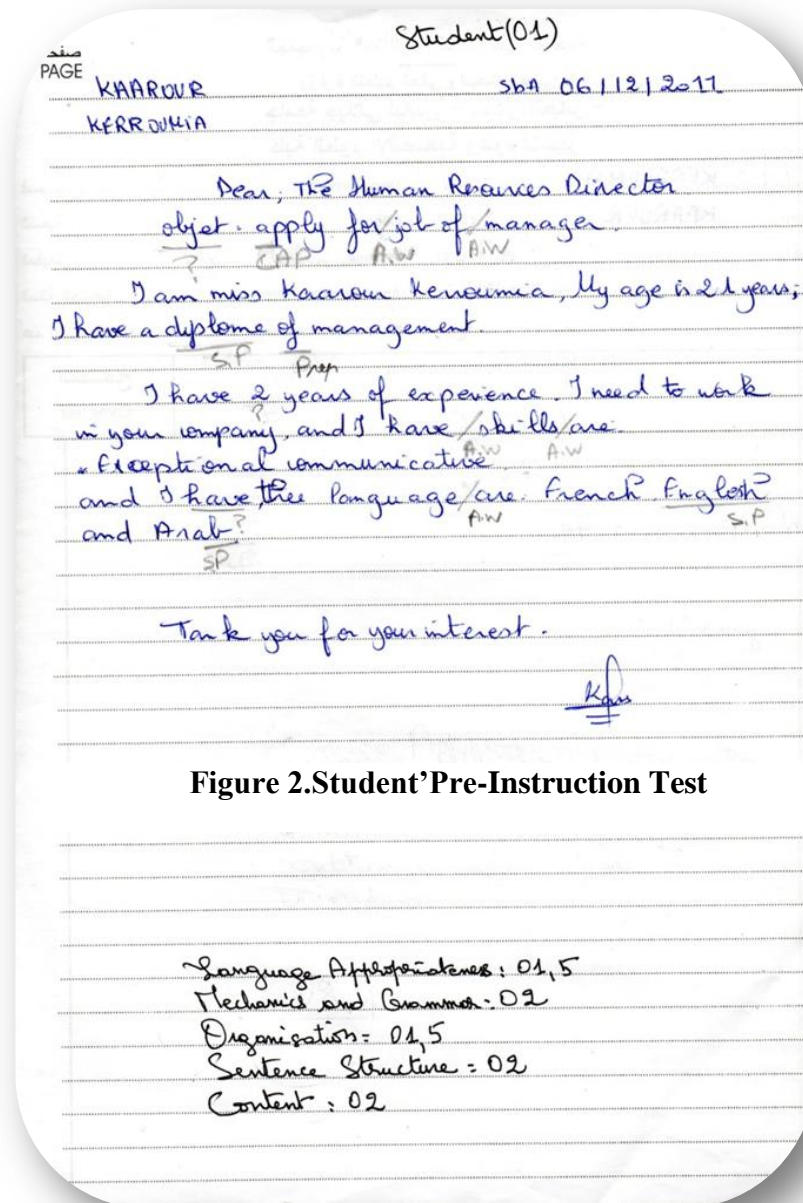 Student(01)
صفحة
PAGE
KAAROUR SbA 06/12/2011
KERROUMIA
Dear; The Human Resources Director
objet. apply for/job of/manager.
? CAP A.W A.W
I am miss Kaarour Kerroumia, My age is 21 years;
I have a diplome of management.
S.P Prep
I have 2 years of experience. I need to work
?
in your company, and I have/skills/are:
A.W A.W
. Exceptional communicative
and I have, thee language/are. French. English?
A.W S.P
and Arab?
SP
Tank you for your interest.
Kaar
Figure 2.Student'Pre-Instruction Test
Language Appropriateness: 01,5
Mechanics and Grammar: 02
Organisation= 01,5
Sentence Structure = 02
Content : 02